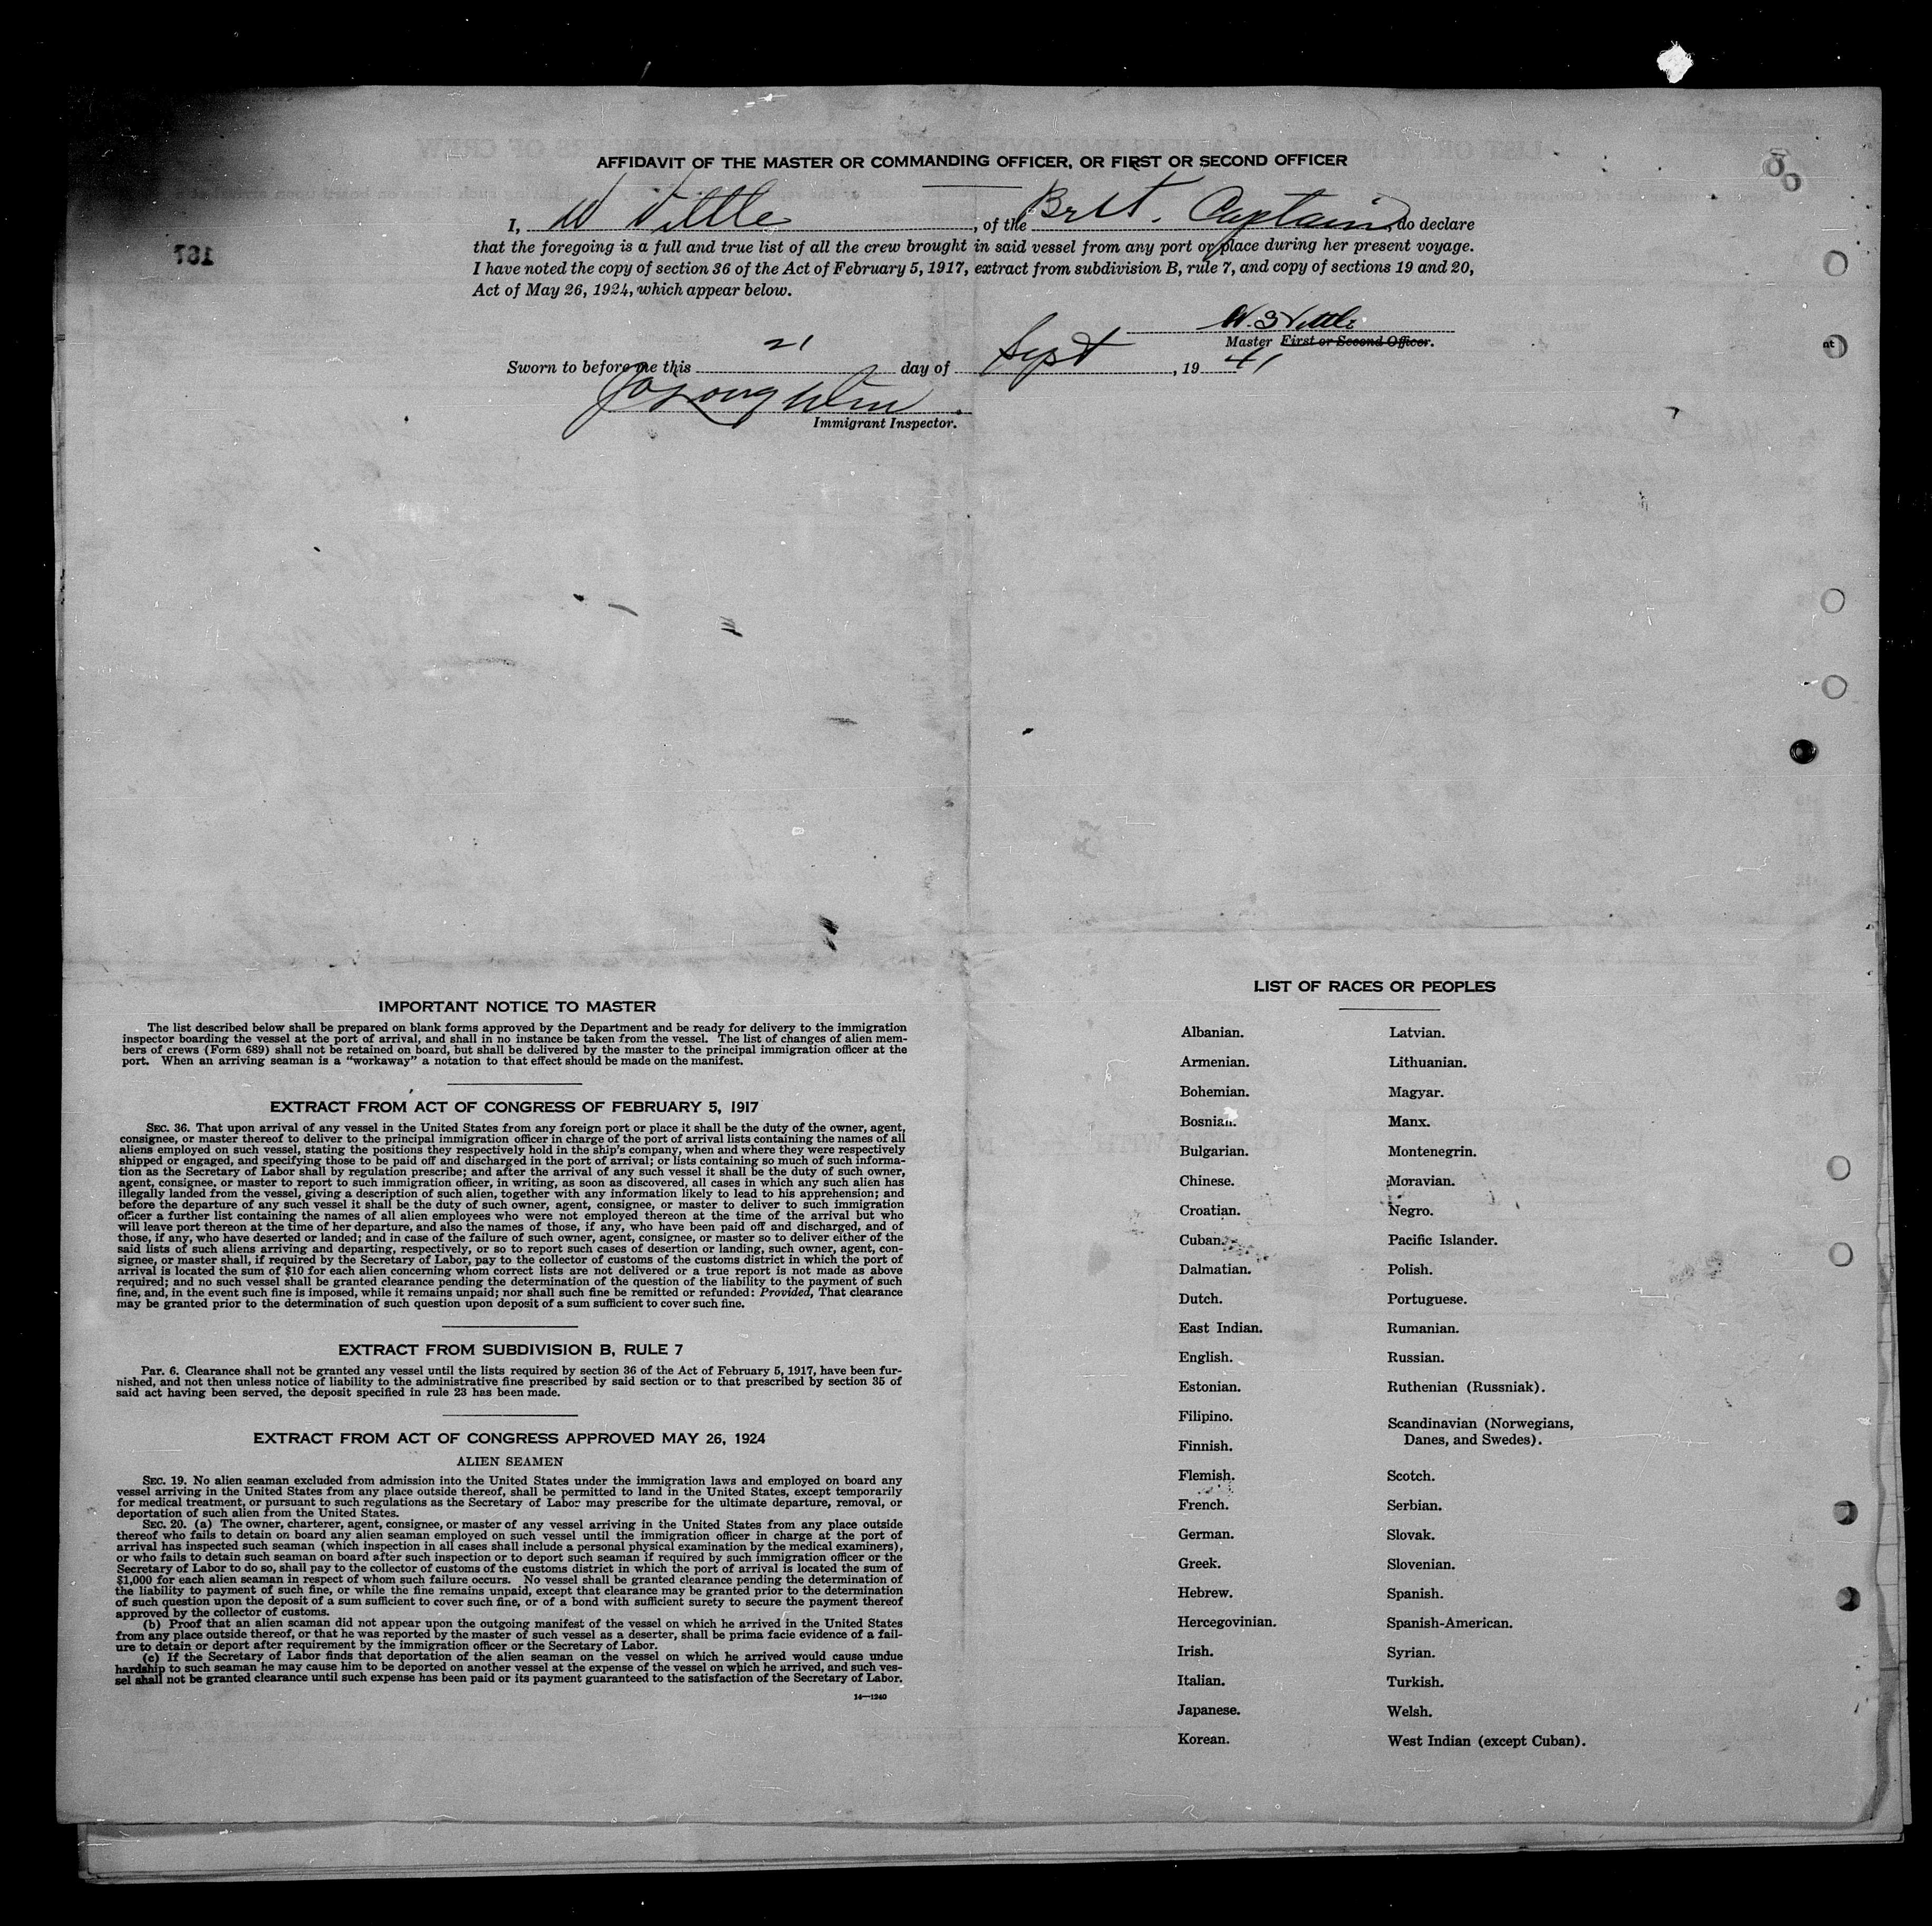 AFFIDAVIT OF THE MASTER OR COMMANDING OFFICER, OR FIRST OR SECOND OFFICER
I, W Vittle, of the Brit. Captain, do declare
that the foregoing is a full and true list of all the crew brought in said vessel from any port or place during her present voyage.
I have noted the copy of section 36 of the Act of February 5, 1917, extract from subdivision B, rule 7, and copy of sections 19 and 20,
Act of May 26, 1924, which appear below.
Master First or Second Officer.
Sworn to before me this 21 day of Sept, 19 41
Immigrant Inspector.
IMPORTANT NOTICE TO MASTER
The list described below shall be prepared on blank forms approved by the Department and be ready for delivery to the immigration
inspector boarding the vessel at the port of arrival, and shall in no instance be taken from the vessel. The list of changes of alien mem-
bers of crews (Form 689) shall not be retained on board, but shall be delivered by the master to the principal immigration officer at the
port. When an arriving seaman is a "workaway" a notation to that effect should be made on the manifest.
EXTRACT FROM ACT OF CONGRESS OF FEBRUARY 5, 1917
SEC. 36. That upon arrival of any vessel in the United States from any foreign port or place it shall be the duty of the owner, agent,
consignee, or master thereof to deliver to the principal immigration officer in charge of the port of arrival lists containing the names of all
aliens employed on such vessel, stating the positions they respectively hold in the ship's company, when and where they were respectively
shipped or engaged, and specifying those to be paid off and discharged in the port of arrival; or lists containing so much of such informa-
tion as the Secretary of Labor shall by regulation prescribe; and after the arrival of any such vessel it shall be the duty of such owner,
agent, consignee, or master to report to such immigration officer, in writing, as soon as discovered, all cases in which any such alien has
illegally landed from the vessel, giving a description of such alien, together with any information likely to lead to his apprehension; and
before the departure of any such vessel it shall be the duty of such owner, agent, consignee, or master to deliver to such immigration
officer a further list containing the names of all alien employees who were not employed thereon at the time of the arrival but who
will leave port thereon at the time of her departure, and also the names of those, if any, who have been paid off and discharged, and of
those, if any, who have deserted or landed; and in case of the failure of such owner, agent, consignee, or master so to deliver either of the
said lists of such aliens arriving and departing, respectively, or so to report such cases of desertion or landing, such owner, agent, con-
signee, or master shall, if required by the Secretary of Labor, pay to the collector of customs of the customs district in which the port of
arrival is located the sum of $10 for each alien concerning whom correct lists are not delivered or a true report is not made as above
required; and no such vessel shall be granted clearance pending the determination of the question of the liability to the payment of such
fine, and, in the event such fine is imposed, while it remains unpaid; nor shall such fine be remitted or refunded: Provided, That clearance
may be granted prior to the determination of such question upon deposit of a sum sufficient to cover such fine.
EXTRACT FROM SUBDIVISION B, RULE 7
Par. 6. Clearance shall not be granted any vessel until the lists required by section 36 of the Act of February 5, 1917, have been fur-
nished, and not then unless notice of liability to the administrative fine prescribed by said section or to that prescribed by section 35 of
said act having been served, the deposit specified in rule 23 has been made.
EXTRACT FROM ACT OF CONGRESS APPROVED MAY 26, 1924
ALIEN SEAMEN
SEC. 19. No alien seaman excluded from admission into the United States under the immigration laws and employed on board any
vessel arriving in the United States from any place outside thereof, shall be permitted to land in the United States, except temporarily
for medical treatment, or pursuant to such regulations as the Secretary of Labor may prescribe for the ultimate departure, removal, or
deportation of such alien from the United States.
SEC. 20. (a) The owner, charterer, agent, consignee, or master of any vessel arriving in the United States from any place outside
thereof who fails to detain on board any alien seaman employed on such vessel until the immigration officer in charge at the port of
arrival has inspected such seaman (which inspection in all cases shall include a personal physical examination by the medical examiners),
or who fails to detain such seaman on board after such inspection or to deport such seaman if required by such immigration officer or the
Secretary of Labor to do so, shall pay to the collector of customs of the customs district in which the port of arrival is located the sum of
$1,000 for each alien seaman in respect of whom such failure occurs. No vessel shall be granted clearance pending the determination of
the liability to payment of such fine, or while the fine remains unpaid, except that clearance may be granted prior to the determination
of such question upon the deposit of a sum sufficient to cover such fine, or of a bond with sufficient surety to secure the payment thereof
approved by the collector of customs.
(b) Proof that an alien seaman did not appear upon the outgoing manifest of the vessel on which he arrived in the United States
from any place outside thereof, or that he was reported by the master of such vessel as a deserter, shall be prima facie evidence of a fail-
ure to detain or deport after requirement by the immigration officer or the Secretary of Labor.
(c) If the Secretary of Labor finds that deportation of the alien seaman on the vessel on which he arrived would cause undue
hardship to such seaman he may cause him to be deported on another vessel at the expense of the vessel on which he arrived, and such ves-
sel shall not be granted clearance until such expense has been paid or its payment guaranteed to the satisfaction of the Secretary of Labor.
14—1240
LIST OF RACES OR PEOPLES
Albanian.
Armenian.
Bohemian.
Bosnian.
Bulgarian.
Chinese.
Croatian.
Cuban.
Dalmatian.
Dutch.
East Indian.
English.
Estonian.
Filipino.
Finnish.
Flemish.
French.
German.
Greek.
Hebrew.
Hercegovinian.
Irish.
Italian.
Japanese.
Korean.
Latvian.
Lithuanian.
Magyar.
Manx.
Montenegrin.
Moravian.
Negro.
Pacific Islander.
Polish.
Portuguese.
Rumanian.
Russian.
Ruthenian (Russniak).
Scandinavian (Norwegians,
Danes, and Swedes).
Scotch.
Serbian.
Slovak.
Slovenian.
Spanish.
Spanish-American.
Syrian.
Turkish.
Welsh.
West Indian (except Cuban).